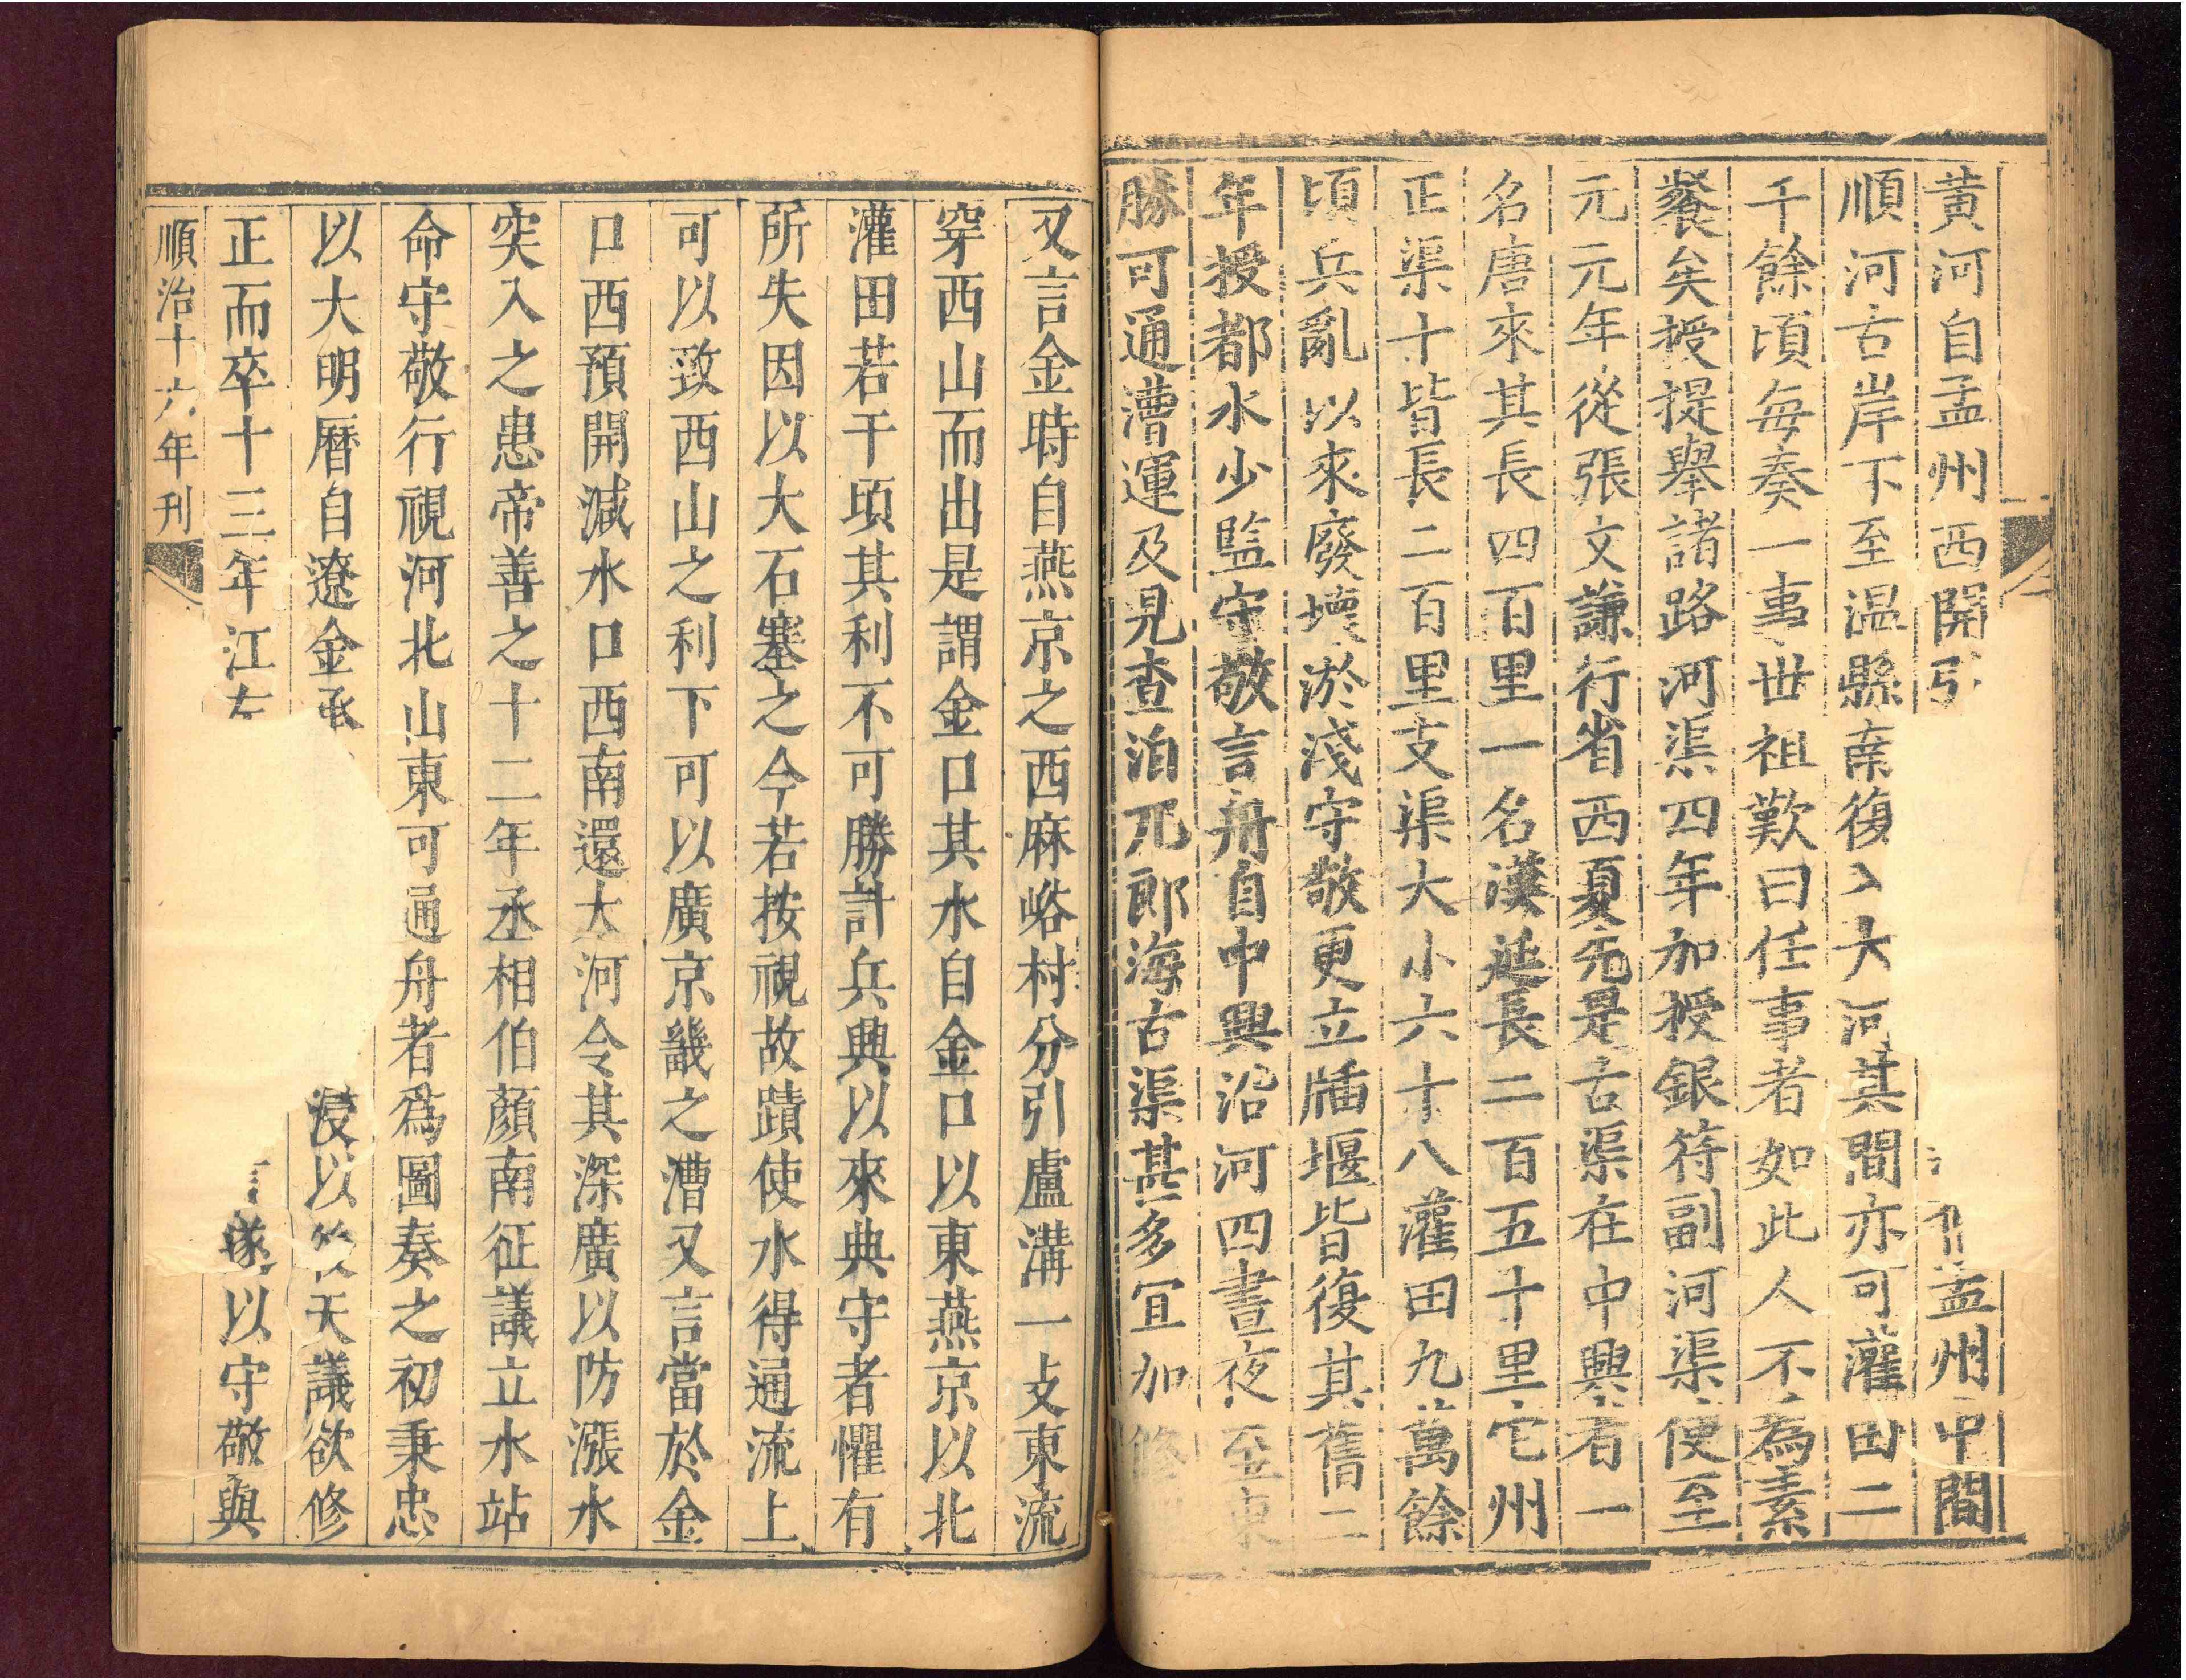 黃河自孟州西開引孟州中間
順河古岸下至溫縣南復入大河其間亦可灌田二
千餘頃每奏一事世祖歎曰任事者如此人不為素
餐矣授提舉諸路河渠四年加授銀符副河渠使至
元元年從張文謙行省西夏先是古渠在中興者一
名唐來其長四百里一名漢延長二百五十里它州
正渠十皆長二百里支渠大小六十八灌田九萬餘
頃兵亂以來廢壞淤淺守敬更立牐堰皆復其舊二
年授都水少監守敬言舟自中興沿河四晝夜至東
勝可通漕運及見查泊兀郎海古渠甚多宜加修
又言金時自燕京之西麻峪村分引盧溝一支東流
穿西山而出是謂金口其水自金口以東燕京以北
灌田若干頃其利不可勝計兵興以來典守者懼有
所失因以大石塞之今若按視故蹟使水得通流上
可以致西山之利下可以廣京畿之漕又言當於金
口西預開減水口西南還大河令其深廣以防漲水
突入之患帝善之十二年丞相伯顏南征議立水站
命守敬行視河北山東可通舟者為圖奏之初秉忠
以大明曆自遼金承浸以後天議欲修
正而卒十三年江左遂以守敬與
順治十六年刊